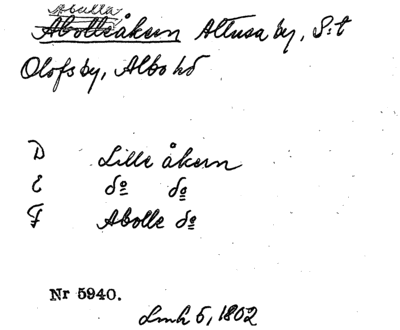 Abulla
Abolleåkern Altusa by, S:t
Olofs by, Albo hd
D Lille åkern
E do do
F Abolle do
Nr 5940.
Lmh 5, 1802